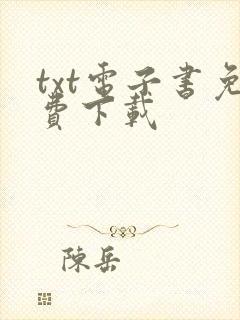 txt電子書免
費下載
陳岳